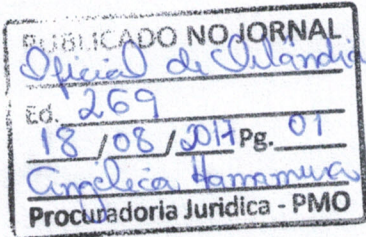 PUBLICADO NO JORNAL
Oficial de Orlândia
Ed. 269
18 / 08 / 2017 Pg. 01
Angelica Hammura
Procuradoria Juridica - PMO